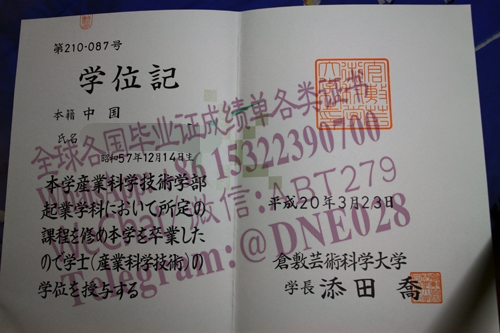 第210-087号
学位記
本籍 中国
氏名
昭和57年12月14日生
本学産業科学技術学部
起業学科において所定の
課程を修め本学を卒業した
ので学士(産業科学技術)の
学位を授与する
平成20年3月23日
倉敷芸術科学大学
学長 添田喬
全球各国毕业证成绩单各类证书
86 15322390700
微信:ABT279
Telegram:@DNE028